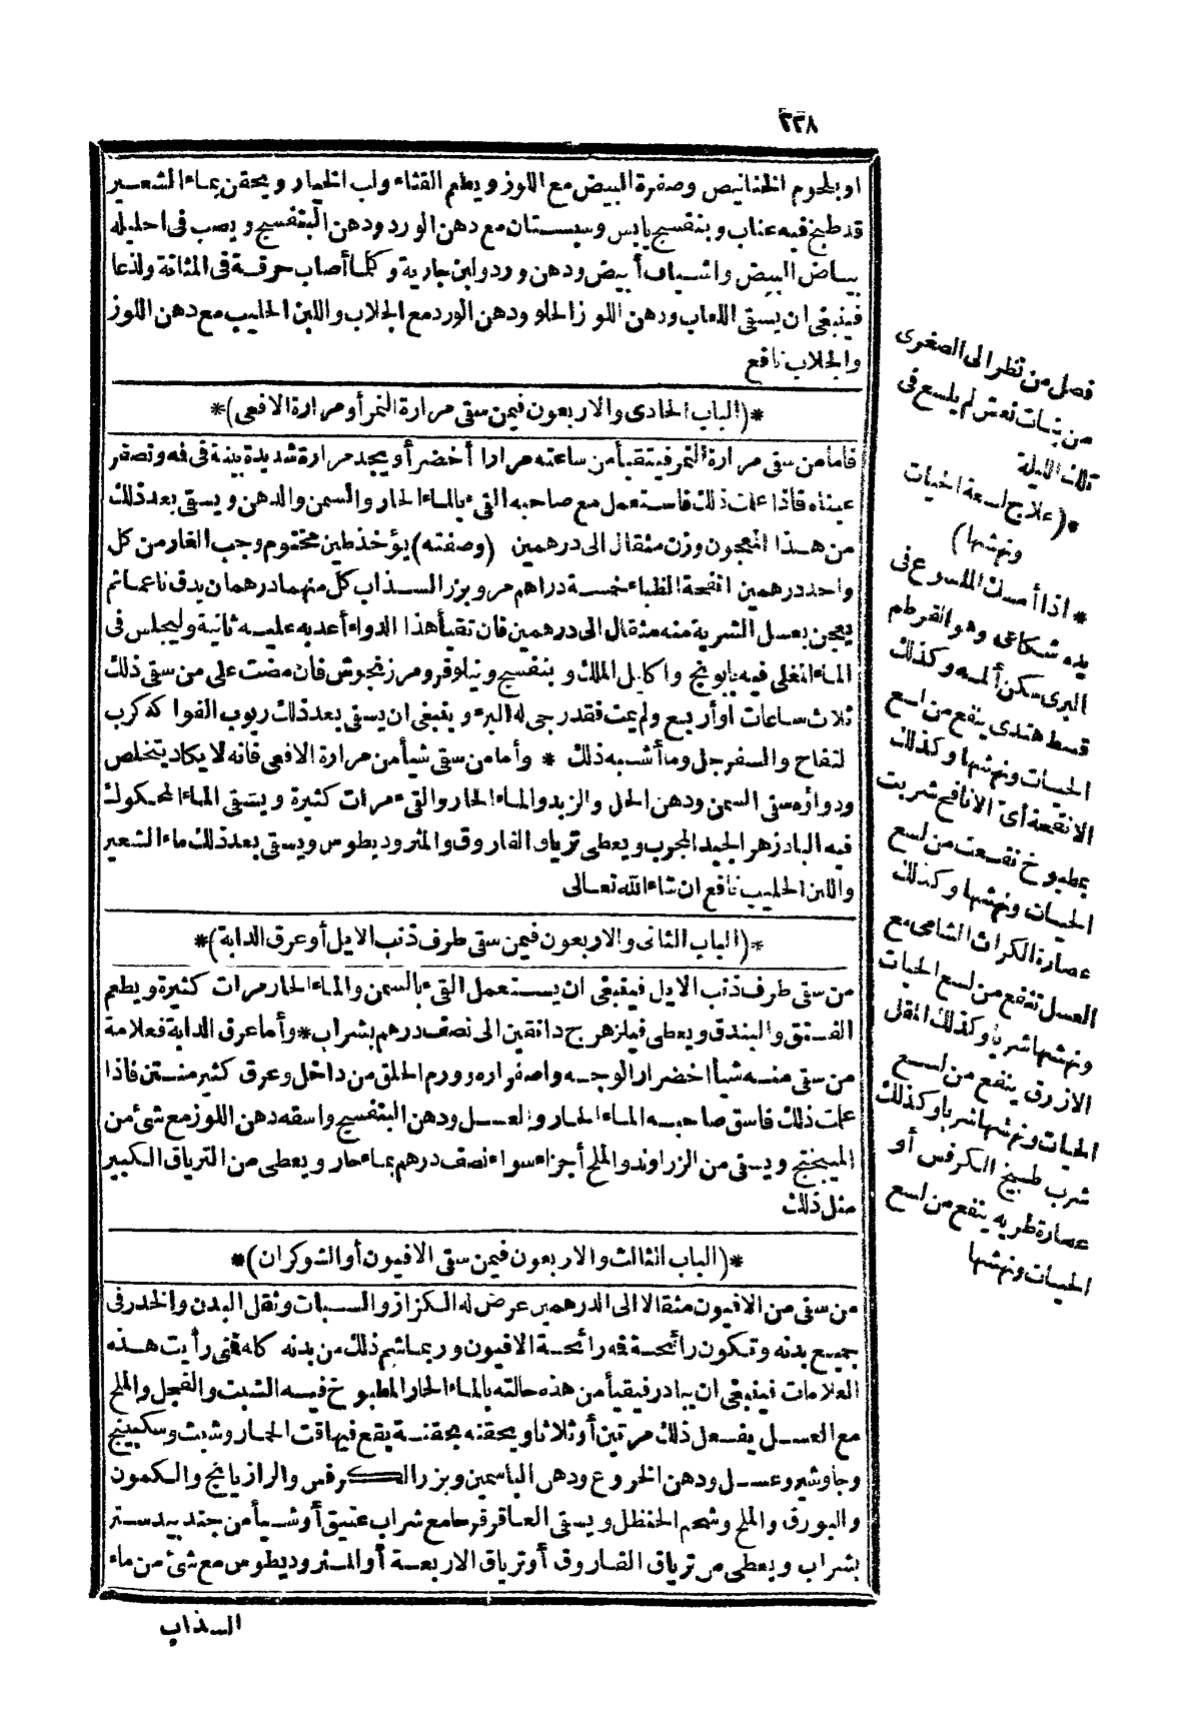 ٢٣٨
او بلحوم الخنانيص وصفرة البيض مع اللوز ويطعم القثاء ولب الخيار ويحقن بماء الشعير
قد طبخ فيه عناب وبنفسج يابس وسبستان مع دهن الورد ودهن البنفسج ويصب فى احليله
بياض البيض واشياف أبيض ودهن ورد ولبن جارية وكلما أصاب حرقة فى المثانة ولذعا
فينبغى ان يسقى اللعاب ودهن اللوز الحلو ودهن الورد مع الجلاب واللبن الحليب مع دهن اللوز
والجلاب نافع
*(الباب الحادى والاربعون فيمن سقى مرارة النمر أو مرارة الافعى)*
فامامن سقى مرارة النمر فيتقيأ من ساعته مرارا أخضر أو يجد مرارة شديدة بينة فى فمه وتصفر
عيناه فاذا علمت ذلك فاستعمل مع صاحبه القىء بالماء الحار والسمن والدهن ويسقى بعد ذلك
من هذا المعجون وزن مثقال الى درهمين (وصفته) يؤخذ طين مختوم وحب الغار من كل
واحد درهمين انفحة الظباء خمسة دراهم مر وبزر السذاب كل منهما درهمان يدق ناعما ثم
يعجن بعسل الشربة منه مثقال الى درهمين فان تقيأ هذا الدواء أعد به عليه ثانية وليجلس فى
الماء المغلى فيه بابونج واكليل الملك وبنفسج ونيلوفر ومرزنجوش فان مضت على من سقى ذلك
ثلاث ساعات أو أربع ولم يمت فقد رجى له البرء وينبغى ان يسقى بعد ذلك ربوب الفواكه كرب
لتفاح والسفرجل وما أشبه ذلك * وأما من سقى شيأ من مرارة الافعى فانه لا يكاد يتخلص
ودواؤه سقى السمن ودهن الخل والزبد والماء الحار والقىء مرات كثيرة ويسقى الماء المحكوك
فيه البادزهر الجيد المجرب ويعطى ترياق الفاروق والمثروديطوس ويسقى بعد ذلك ماء الشعير
واللبن الحليب نافع ان شاء الله تعالى
*(الباب الثانى والاربعون فيمن سقى طرف ذنب الايل أو عرق الدابة)*
من سقى طرف ذنب الايل فينبغى ان يستعمل القىء بالسمن والماء الحار مرات كثيرة ويطعم
الفستق والبندق ويعطى فيلزهرج دانقين الى نصف درهم بشراب * وأما عرق الدابة فعلامة
من سقى منه شيأ اخضرار الوجه واصفراره وورم الحلق من داخل وعرق كثير منتن فاذا
علمت ذلك فاسق صاحبه الماء الحار والعسل ودهن البنفسج واسقه دهن اللوز مع شئ من
الميبختج ويسقى من الزراوند والملح أجزاء سواء نصف درهم بماء حار ويعطى من الترياق الكبير
مثل ذلك
*(الباب الثالث والاربعون فيمن سقى الافيون أو الشوكران)*
من سقى من الافيون مثقالا الى الدرهمين عرض له الكزاز والسبات وثقل البدن والخدر فى
جميع بدنه وتكون رائحة فمه رائحة الافيون وربما شم ذلك من بدنه كله فتى رأيت هذه
العلامات فينبغى ان يبادر فيقيأ من هذه حالته بالماء الحار المطبوخ فيه الشبت والفجل والملح
مع العسل يفعل ذلك مرتين أو ثلاثا ويحقنه بحقنة يقع فيها قت الحمار وشبث وسكبينج
وجاوشير وعسل ودهن الخروع ودهن الياسمين وبزر الكرفس والرازيانج والكمون
والبورق والملح وشحم الحنظل ويسقى العاقرقرحا مع شراب عتيق أو شيأ من جندبيدستر
بشراب ويعطى من ترياق الفاروق أو ترياق الاربعة أو المثروديطوس مع شئ من ماء
السذاب
فصل من نظر الى الصغرى
من بنات نعش لم يلسع فى
تلك الليلة
*(علاج لسعة الحيات
ونهشها)
* اذا أمسك الملسوع فى
يده شكاعى وهو القرطم
البرى سكن ألمه وكذلك
قسط هندى ينفع من لسع
الحيات ونهشها وكذلك
الانفحة أى الانافح شربت
بمطبوخ نفعت من لسع
الحيات ونهشها وكذلك
عصارة الكراث الشامى مع
العسل تنفع من لسع الحيات
ونهشها شربا وكذلك المقل
الازرق ينفع من لسع
الحيات ونهشها شربا وكذلك
شرب طبيخ الكرفس أو
عصارة طريه ينفع من لسع
الحيات ونهشها